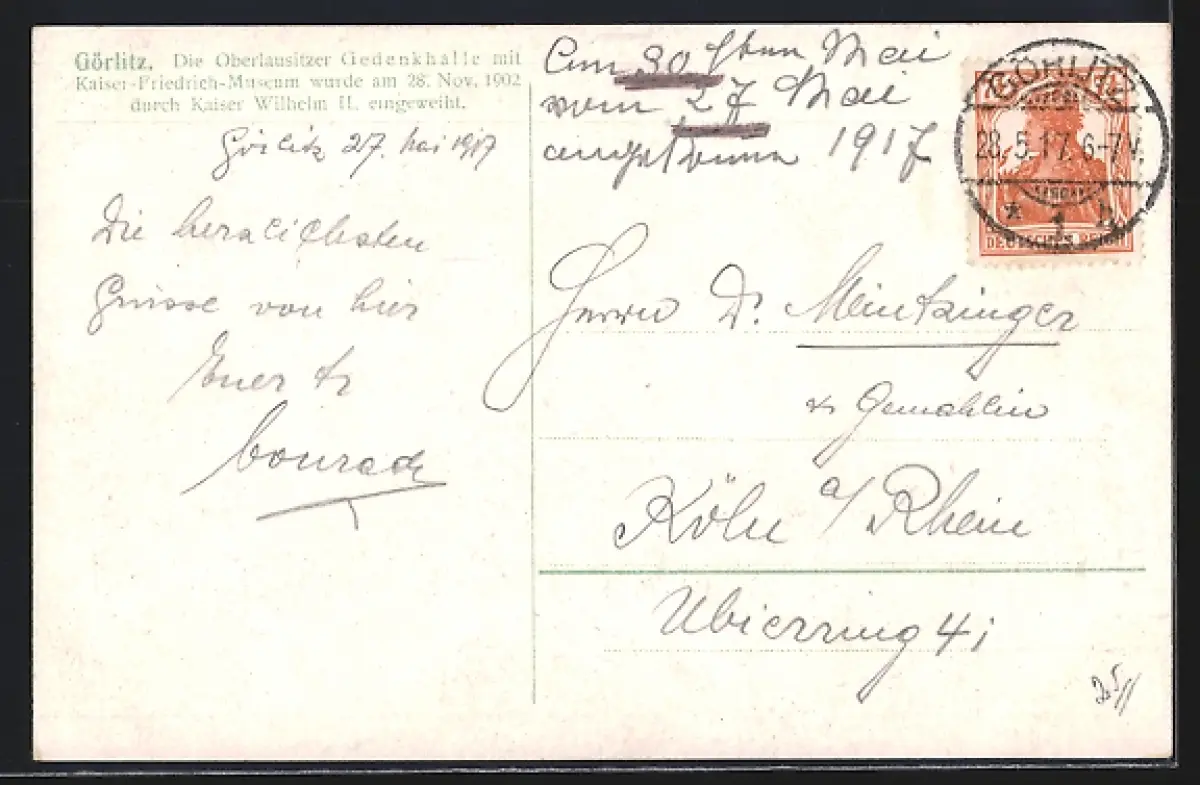 Görlitz. Die Oberlausitzer Gedenkhalle mit
Kaiser-Friedrich-Museum wurde am 28. Nov. 1902
durch Kaiser Wilhelm II. eingeweiht.
Am 30sten Mai
vom 27 Mai
angekommen 1917
Görlitz 27. Mai 1917
Die herzlichsten
Grüsse von hier
Euer tr
Conrad
GÖRLITZ
28.5.17. 6-7V.
* 1 h
DEUTSCHES REICH
Herrn Dr. Meintzinger
& Gemahlin
Köln a/ Rhein
Ubierring 41